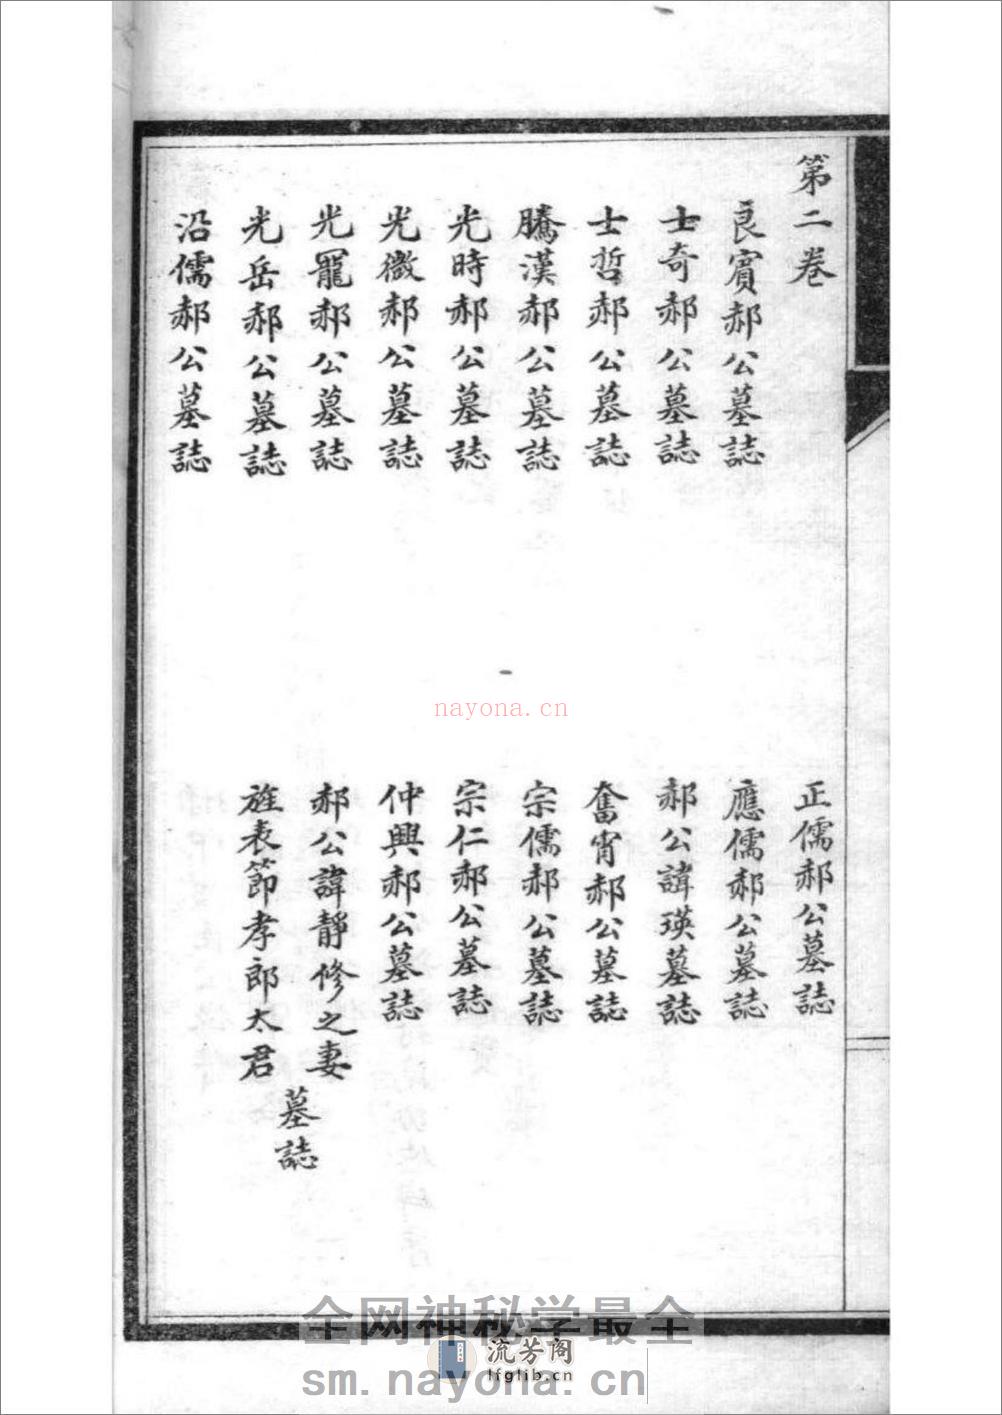 第二卷
良賓郝公墓誌
士奇郝公墓誌
士哲郝公墓誌
騰漢郝公墓誌
光時郝公墓誌
光微郝公墓誌
光罷郝公墓誌
光岳郝公墓誌
沿儒郝公墓誌
正儒郝公墓誌
應儒郝公墓誌
郝公諱瑛墓誌
奮宵郝公墓誌
宗儒郝公墓誌
宗仁郝公墓誌
仲興郝公墓誌
郝公諱靜修之妻
旌表節孝郎太君
墓誌
nayona.cn
全网神秘学最全
流芳阁
lfglib.cn
sm.nayona.cn